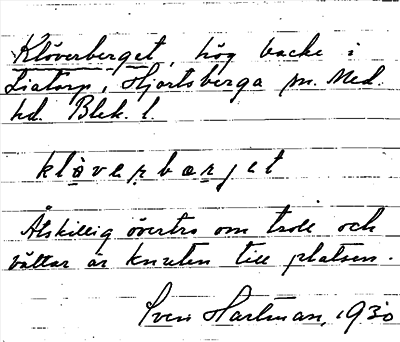 Klöverberget, hög backe i
Liatorp, Hjortsberga sn. Med.
hd. Blek. l.
klöverbærjet
Åtskillig övertro om troll och
vättar är knuten till platsen.
Sven Hartman, 1930